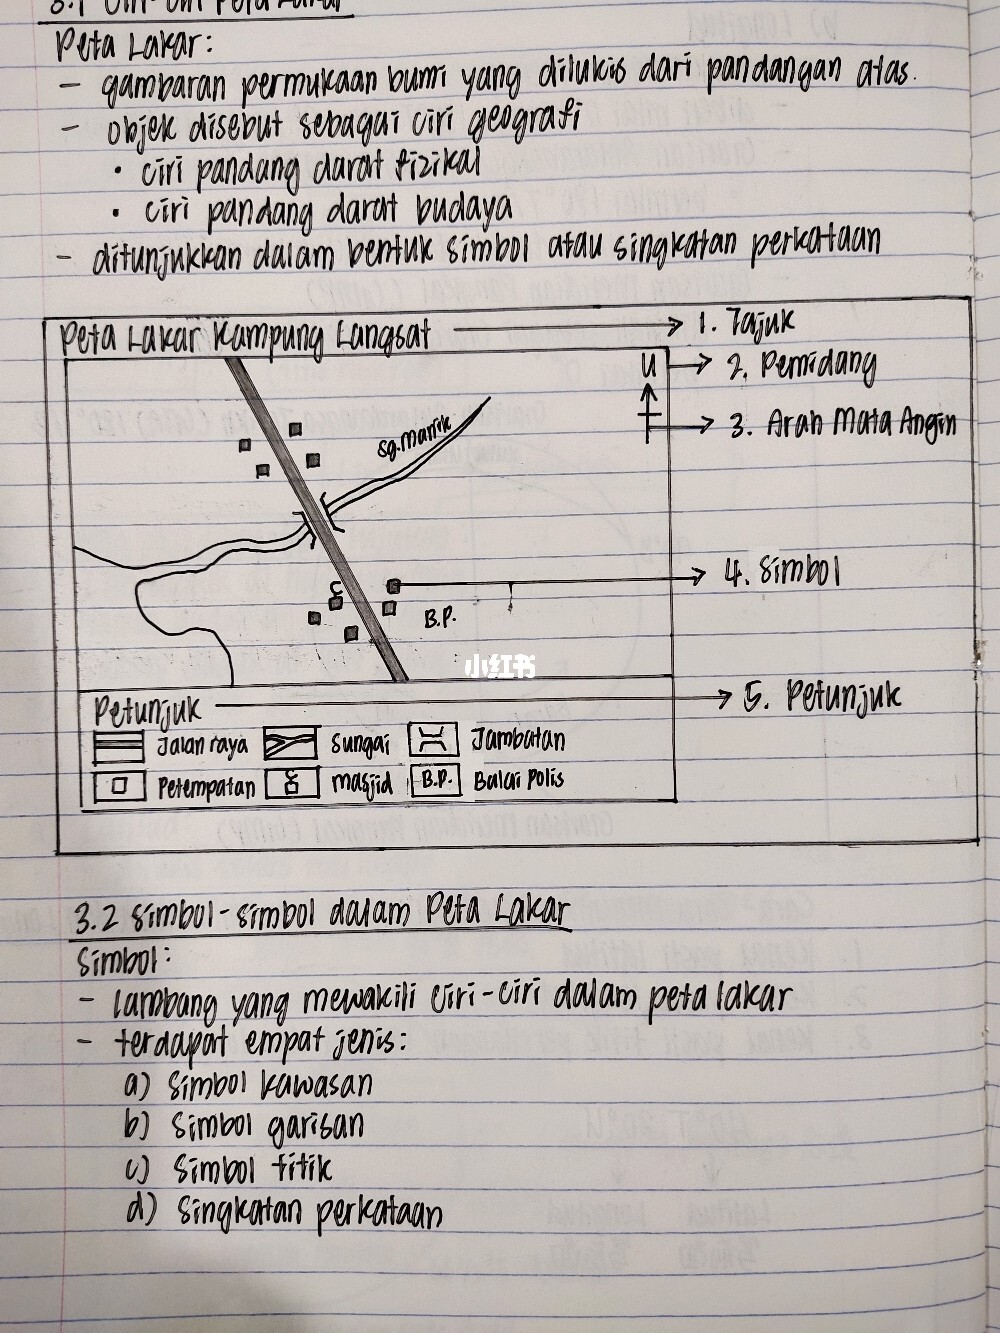 3.1 Ciri-ciri Peta Lakar
Peta Lakar:
- gambaran permukaan bumi yang dilukis dari pandangan atas.
- objek disebut sebagai ciri geografi
• ciri pandang darat fizikal
• ciri pandang darat budaya
- ditunjukkan dalam bentuk simbol atau singkatan perkataan
Peta Lakar Kampung Langsat
1. Tajuk
U
2. Pemidang
3. Arah Mata Angin
sg. Manik
4. Simbol
B.P.
小红书
Petunjuk
5. Petunjuk
Jalan raya
Sungai
Jambatan
Petempatan
masjid
B.P.
Balai Polis
3.2 Simbol-simbol dalam Peta Lakar
Simbol:
- lambang yang mewakili ciri-ciri dalam peta lakar
- terdapat empat jenis:
a) Simbol kawasan
b) Simbol garisan
c) Simbol titik
d) Singkatan perkataan